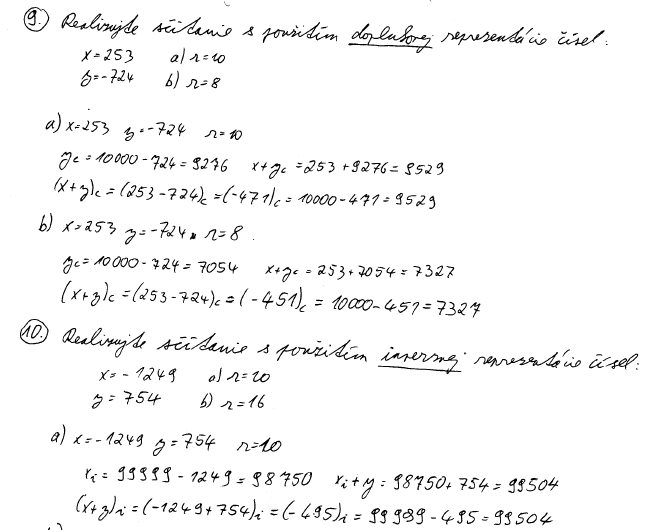 9. Realizujte sčítanie s použitím doplnkovej reprezentácie čísel:
x=253 a) r=10
y=-724 b) r=8
a) x=253 y=-724 r=10
yc=10000-724=9276 x+yc=253+9276=9529
(x+y)c=(253-724)c=(-471)c=10000-471=9529
b) x=253 y=-724 r=8
yc=10000-724=7054 x+yc=253+7054=7327
(x+y)c=(253-724)c=(-451)c=10000-451=7327
10. Realizujte sčítanie s použitím inverznej reprezentácie čísel:
x=-1249 a) r=10
y=754 b) r=16
a) x=-1249 y=754 r=10
xi=99999-1249=98750 xi+y=98750+754=99504
(x+y)i=(-1249+754)i=(-495)i=99999-495=99504